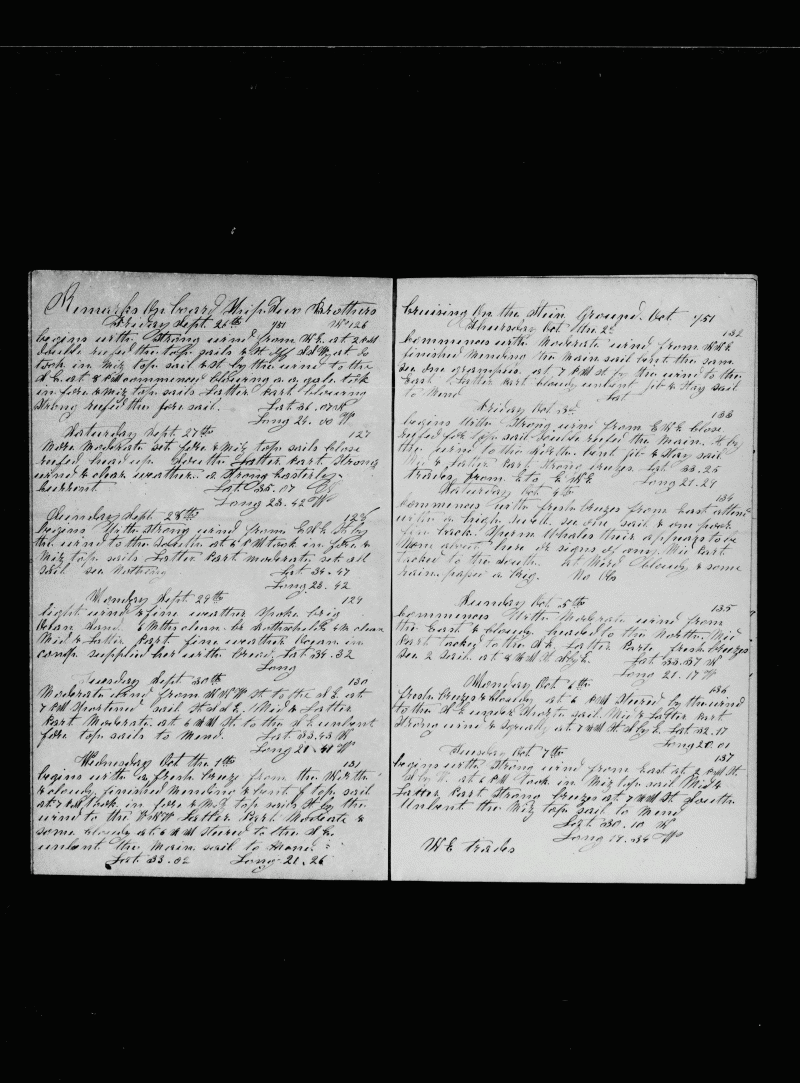 Remarks On board Ship Two Brothers
Friday Sept 26th /51 No 126
begins with Strong wind from N E. at 2 PM
double reefed the top sails & St off S S W, at 6
took in Miz top sail & St by the wind to the
S E. at 8 PM commenced blowing a gale took
in fore & Miz top sails Latter Part blowing
Strong reefed the fore sail. Lat 36.07 N
Long 24.00 W
Saturday Sept. 27th 127
More Moderate set fore & Miz top sails close
reefed head up South Latter Part Strong
wind & clear weather. a Strong Easterly
current Lat 35.07 N
Long 23.42 W
Sunday Sept. 28th 128
begins With strong wind from E N E St by
the wind to the South at 6 PM took in fore &
Miz top sails Latter Part moderate set all
sail see Nothing Lat 34.47
Long 23.42
Monday Sept 29th 129
light wind & fine weather Spoke brig
clean
Mid & Latter Part fine weather Ocean in
comp. supplied her with bread. Lat 34.32
Long
Tuesday Sept 30th 130
Moderate wind from W N W St to the S E at
7 PM Shortened sail St S S E, Mid & Latter
Part Moderate. at 6 AM St. to the S E unbent
fore top sails to Mend. Lat 33.43 N
Long 21.41 W
Wednesday Oct the 1th 131
begins with a fresh breeze from the North
& cloudy, finished Mending & bent f top sail
at 7 PM took in fore & Miz top sails St by the
wind to the W N W Latter Part Moderate &
some cloudy at 6 AM Steered to the S E.
unbent the Main sail to Mend
Lat 33.02 Long 21.26
Cruising On the Stein Ground. Oct /51
Thursday Oct the 2d 132
Commences with Moderate wind from N N E
finished Mending the Main sail bent the same
see some grampus. at 7 PM St by the wind to the
East. Latter Part cloudy unbent jib & Stay sail
to Mend Lat
Friday Oct 3d 133
begins with Strong wind from E N E close
reefed fore top sail double reefed the Main. St by
the wind to the North. bent jib & Stay sail
Mid & Latter Part Strong breezes. Lat 33.25
trades from E to E N E Long 21.29
Saturday Oct 4th 134
Commences with fresh breezes from East attend
with a high swell. see one sail & one poor
fin back. Sperm Whales their appears to be
None about here or signs of any Mid Part
tacked to the South. at Mered cloudy & some
rain passed a Brig. No Obs
Sunday Oct 5th 135
Commences With Moderate wind from
the East & cloudy, headed to the North. Mid
Part tacked to the S E. Latter Part fresh breezes
see 2 sail. at 8 AM St S by E. Lat 33.37 N
Long 21.17 W
Monday Oct 6th 136
fresh breezes & cloudy at 6 PM Steered by the wind
to the S E under Short sail. Mid & Latter Part
Strong wind & squally. at 7 AM St. S by E. Lat 32.17
Long 20.01
Tuesday Oct 7th 137
begins with Strong wind from East at 2 PM St.
S by W. at 6 PM took in Miz top sail Mid &
Latter Part Strong breezes at 7 AM St. South
Unbent the Miz top sail to Mend
Lat 30.10 N
Long 19.34 W
N E trades